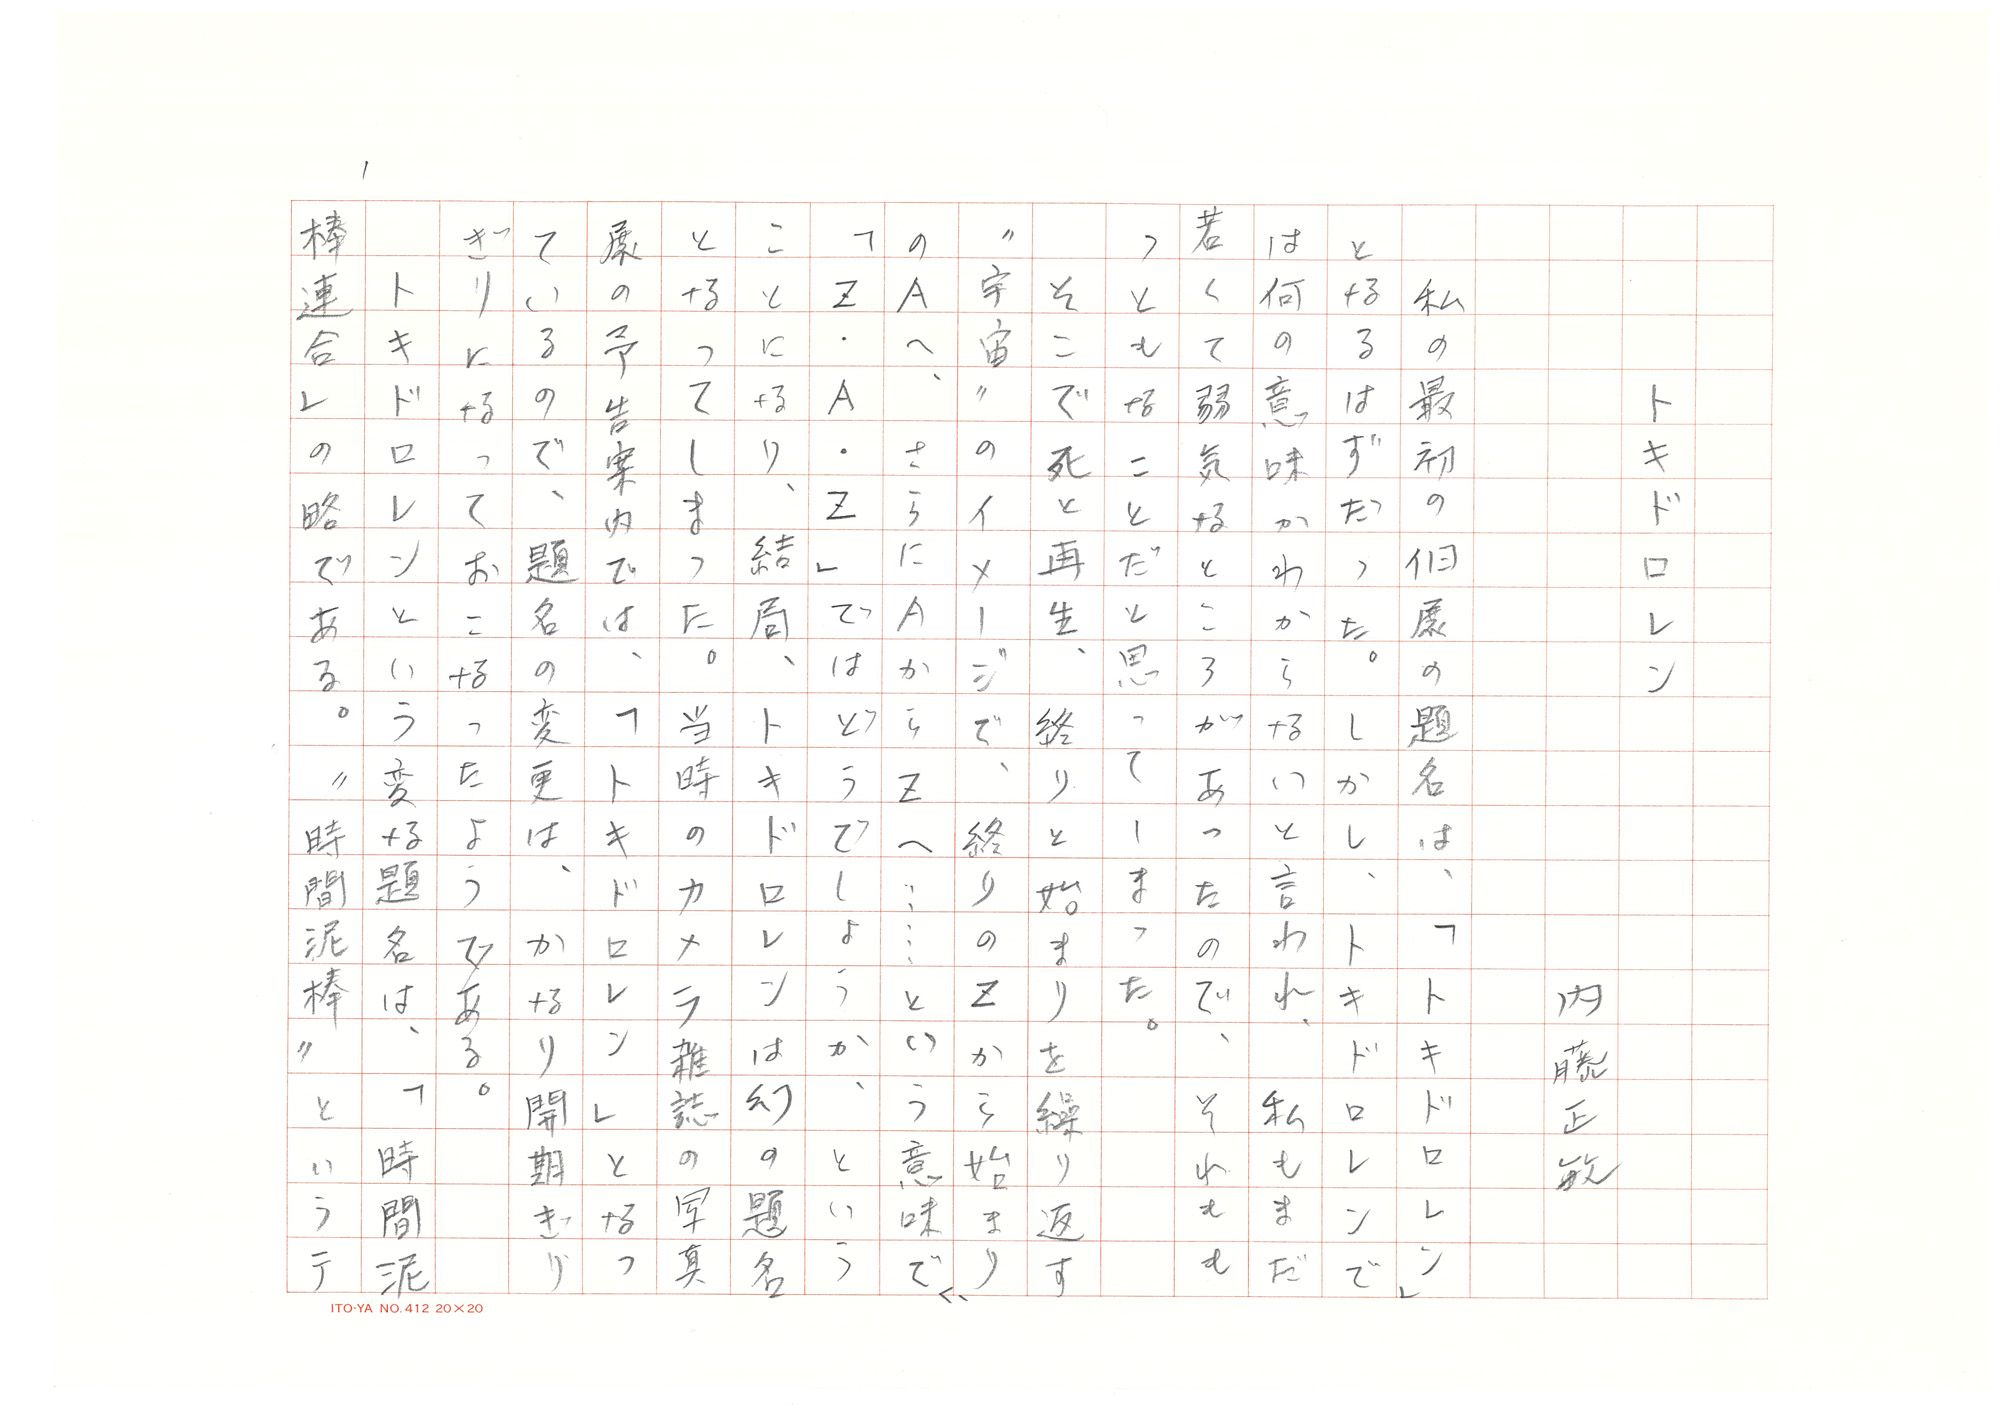 1
トキドロレン
内藤正敏
私の最初の個展の題名は、「トキドロレン」
となるはずだった。しかし、トキドロレンで
は何の意味かわからないと言われ、私もまだ
若くて弱気なところがあったので、それもも
っともなことだと思ってしまった。
そこで死と再生、終りと始まりを繰り返す
〃宇宙〃のイメージで、終りのZから始まり、
のAへ、さらにAからZへ……という意味で
「Z・A・Z」ではどうでしょうか、という
ことになり、結局、トキドロレンは幻の題名
となってしまった。当時のカメラ雑誌の写真
展の予告案内では、「トキドロレン」となっ
ているので、題名の変更は、かなり開期ぎり
ぎりになっておこなったようである。
トキドロレンという変な題名は、「時間泥
棒連合」の略である。〃時間泥棒〃というテ
ITO-YA NO.412 20×20